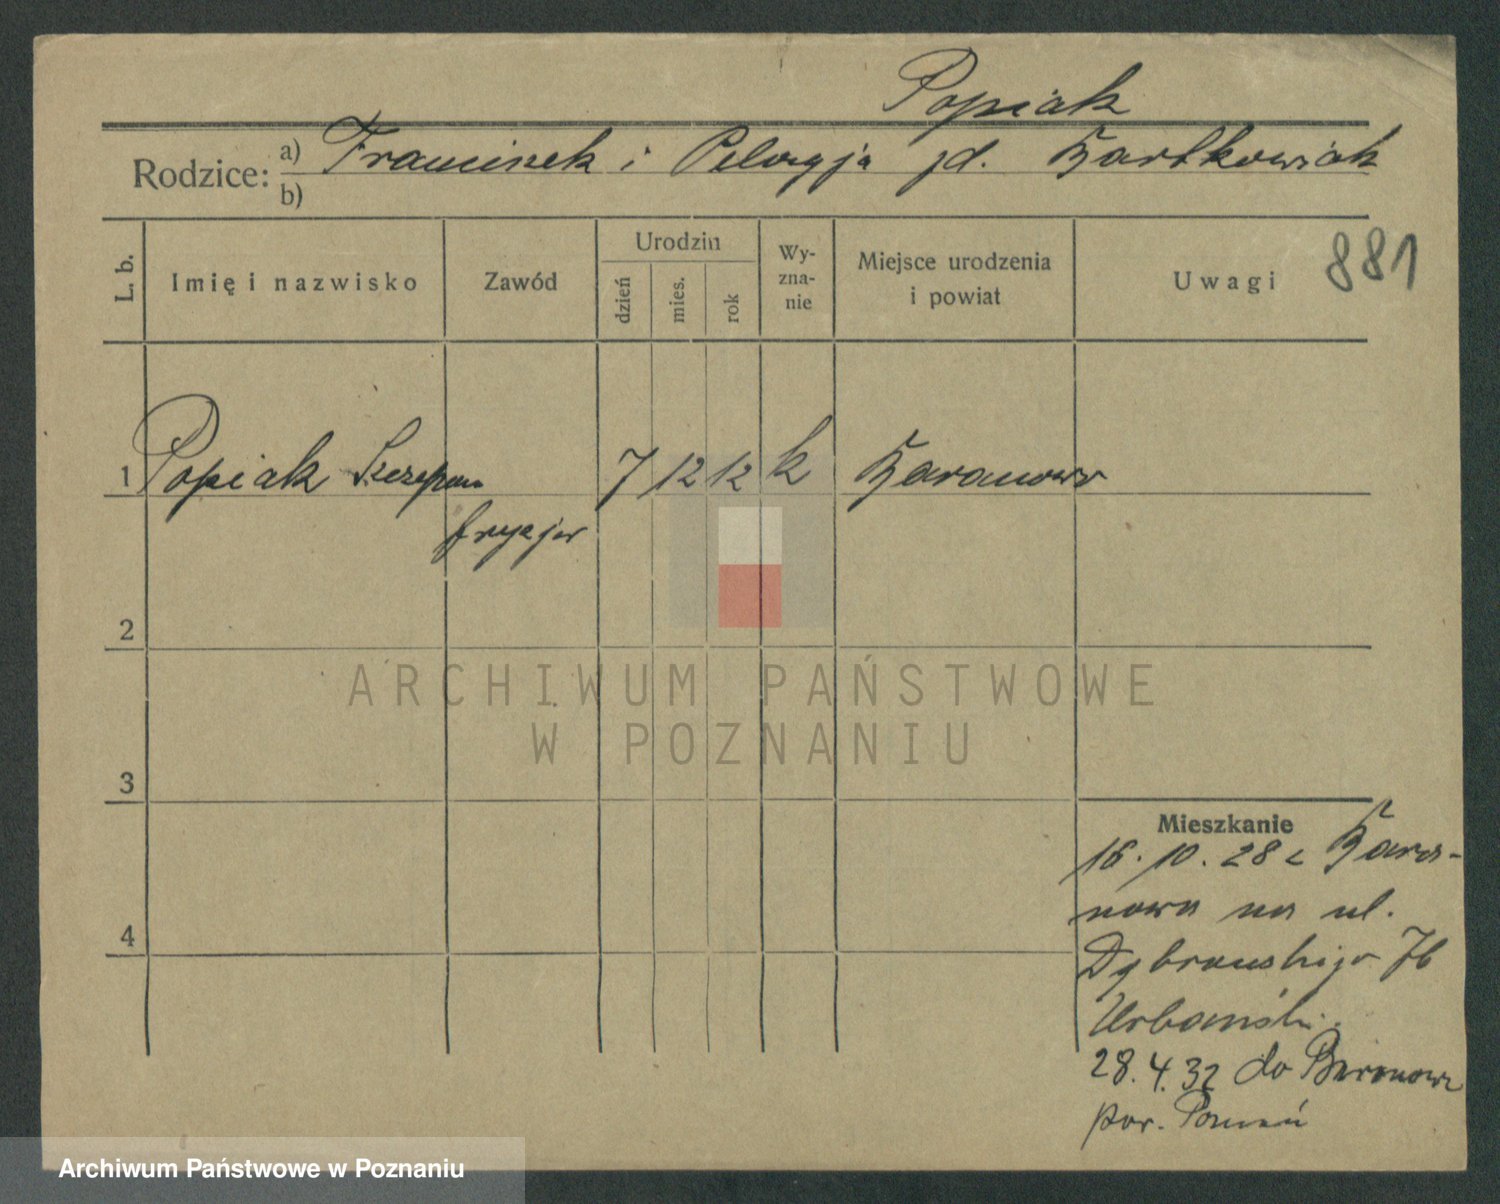 Popiak
Rodzice: a) Franciszek i Pelagja zd. Bartkowiak
b)
881
L. b. Imię i nazwisko Zawód Urodzin dzień mies. rok Wy-zna-nie Miejsce urodzenia i powiat Uwagi
1 Popiak Szczepan 7 12 12 k Baranowo
fryzjer
2
ARCHIWUM PAŃSTWOWE
W POZNANIU
3
Mieszkanie
16.10.28 z Bara-
nowa na ul.
Dąbrowskiego 76
Urbański.
4
28.4.32 do Baranowa
pow. Poznań
Archiwum Państwowe w Poznaniu